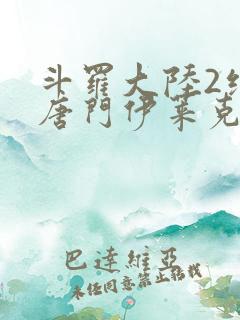 斗羅大陸2絕
唐門伊萊克
巴達維亞
未經同意禁止轉載